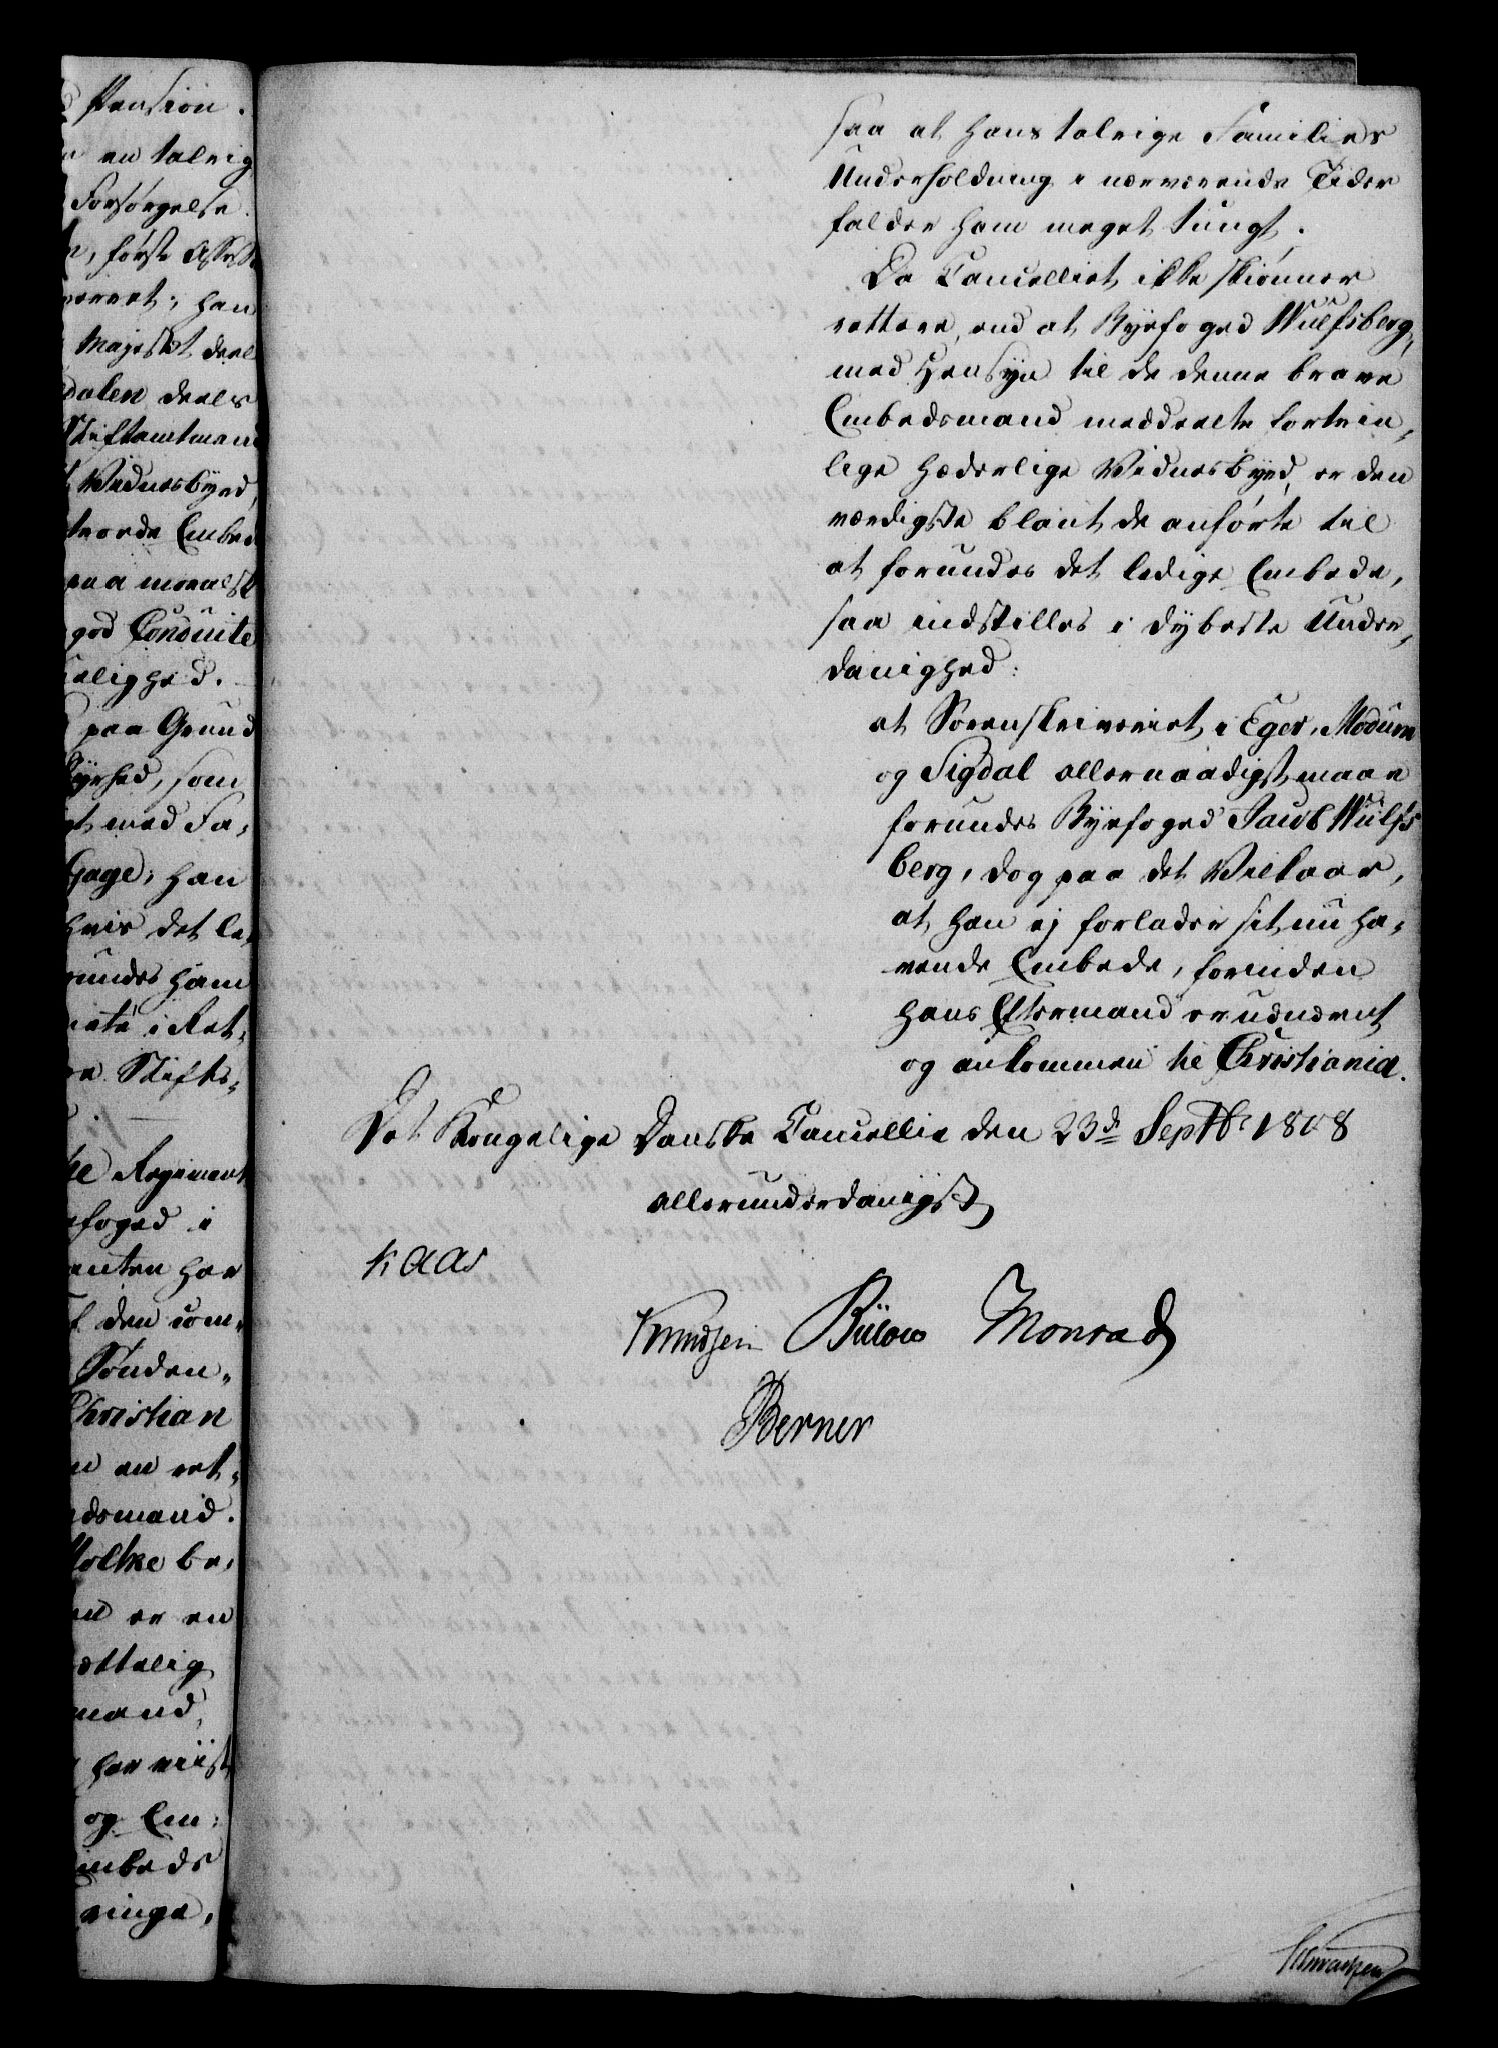 Pension.
en talrig
Forsørgelse.
første Assess
han
Majestæt deels
dalen deels
Stiftamtmand
Vidnesbyrd,
Embed
paa moralsk
god Conduite
elighed.
paa Grund
som
med Fa-
Gage; han
hvis det le-
undes ham
i Ret-
Stifts-
ke Regiment
foged i
anten har
den com-
Sønden-
Christian
en ret-
dsmand.
Moltke be-
en er en
ættelig
mand,
har viist
og Em-
Embeds
ringe,
saa at hans talrige Families
Underholdning i nærværende Tider
falder ham meget tungt.
Da Cancelliet ikke skiønner
rettere, end at Byefoged Wulfsberg,
med Hensyn til de denne brave
Embedsmand meddeelte fortrin-
lige hæderlige Vidnesbyrd, er den
værdigste blant de anførte til
at forundes det ledige Embede,
saa indstilles i dybeste Under-
danighed:
at Sorenskriveriet i Eger, Modum
og Sigdal allernaadigst maae
forundes Byefoged Jacob Wulfs
berg, dog paa det Vilkaar,
at han ej forlader sit nu ha-
vende Embede, forinden
hans Eftermand er udnævnt
og ankommen til Christiania.
Det Kongelige Danske Cancellie den 23d Septbr 1808
allerunderdanigst
Kaas
Knudsen Bülow Monrad
Berner